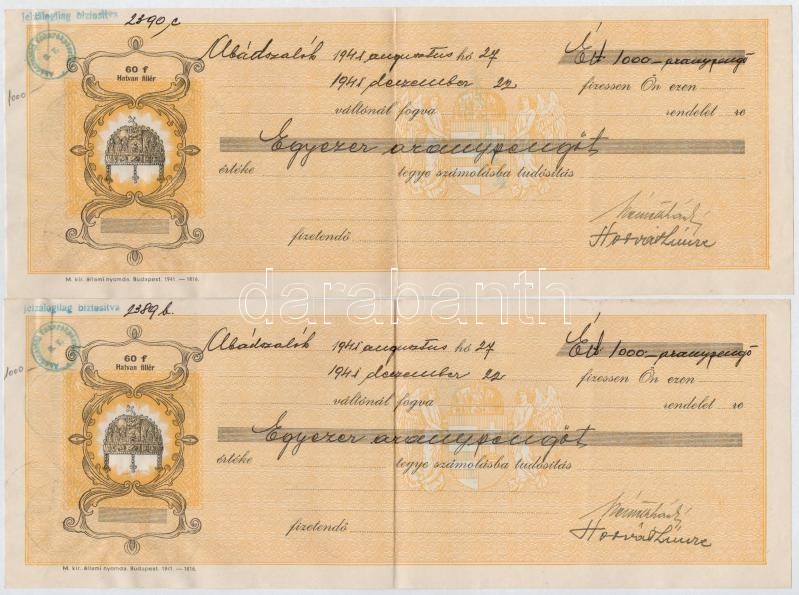 jelzálogilag biztosítva
2390.c
60 f
Hatvan fillér
1000
Abádszalók 1941 augusztus hó 27
1941 december 22 fizessen Ön ezen
váltónál fogva rendelet re
Egyezer aranypengőt
értéke tegye számolásba tudósítás
fizetendő
Horváth Imre
M. kir. állami nyomda. Budapest. 1941. — 1816.
darabanth
jelzálogilag biztosítva
2389 b.
60 f
Hatvan fillér
1000
Abádszalók 1941 augusztus hó 27
1941 december 22 fizessen Ön ezen
váltónál fogva rendelet re
Egyezer aranypengőt
értéke tegye számolásba tudósítás
fizetendő
Horváth Imre
M. kir. állami nyomda. Budapest. 1941. — 1816.